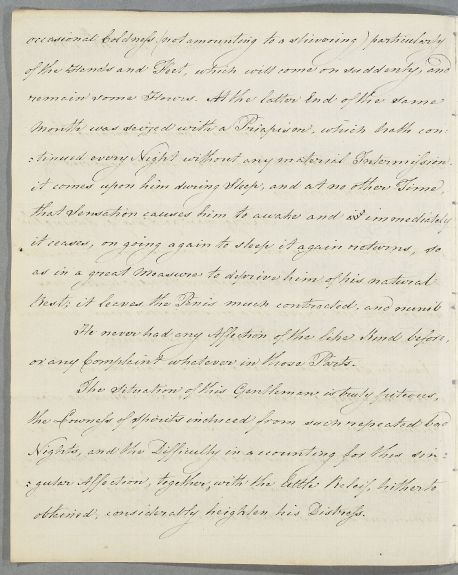 occasional Coldness, (not amounting to a shivering) particularly
of the Hands and Feet, which will come on suddenly, and
remain some Hours. At the latter End of the same
Month was seized with a Priapism, which hath con
:tinued every Night without any material Intermission.
it comes upon him during Sleep, and at no other Time,
that Sensation causes him to awake and as immediately
it ceases, on going again to sleep it again returns, so
as in a great Measure to deprive him of his natural
Rest; it leaves the Penis much contracted, and numb
He never had any Affection of the like Kind before,
or any Complaint whatever in those Parts.
The Situation of this Gentleman is truly piteous,
the Lowness of Spirits induced from such repeated bad
Nights, and the Difficulty in accounting for this sin:
:gular Affection, together, with the little Relief, hitherto
obtained, considerably heighten his Distress.